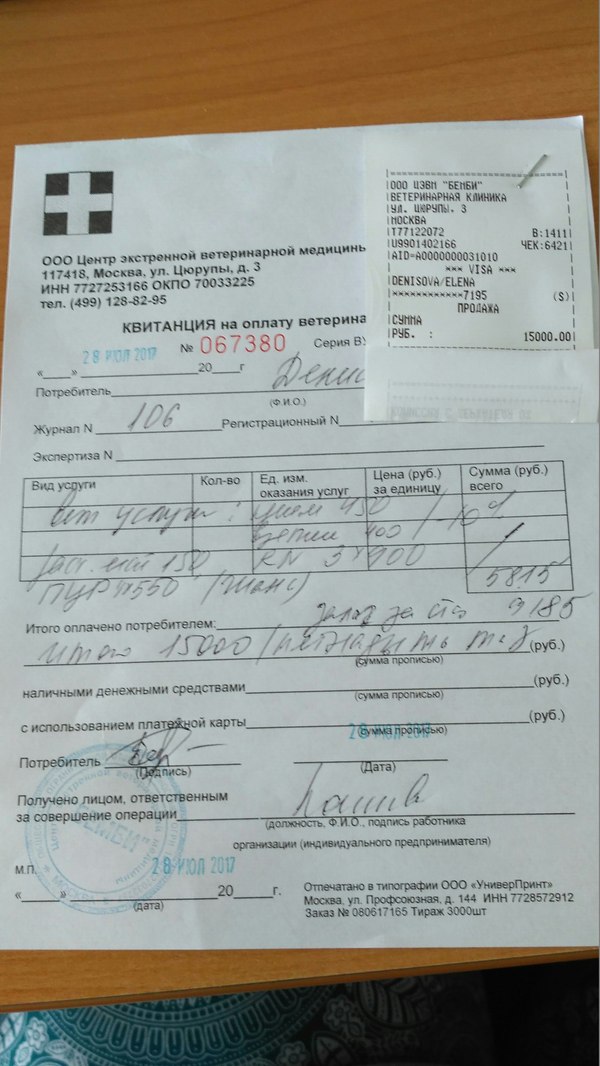 ООО Центр экстренной ветеринарной медицины
117418, Москва, ул. Цюрупы, д. 3
ИНН 7727253166 ОКПО 70033225
тел. (499) 128-82-95
ООО ЦЭВМ "БЕМБИ"
ВЕТЕРИНАРНАЯ КЛИНИКА
УЛ. ЦЮРУПЫ. 3
МОСКВА
Т77122072 В:1411
U9901402166 ЧЕК:6421
AID=A0000000031010
*** VISA ***
DENISOVA/ELENA
************7195 (S)
ПРОДАЖА
СУММА
РУБ. : 15000.00
КВИТАНЦИЯ на оплату ветерина
28 ИЮЛ 2017 № 067380 Серия ВУ
«____» 20___г
Потребитель Денис
(Ф.И.О.)
Журнал N 106 Регистрационный N
Экспертиза N
Вид услуги Кол-во Ед. изм. оказания услуг Цена (руб.) за единицу Сумма (руб.) всего
вет услуги: прием 450 / -10%
400
150 3*900
ПЦР 550 5815
Итого оплачено потребителем: залог за 9185
итого 15000 (руб.)
(сумма прописью)
наличными денежными средствами (руб.)
(сумма прописью)
с использованием платежной карты (руб.)
(сумма прописью)
28 ИЮЛ 2017
Потребитель
(Подпись) (Дата)
Получено лицом, ответственным
за совершение операции
(должность, Ф.И.О., подпись работника
организации (индивидуального предпринимателя)
"БЕМБИ"
М.П.
28 ИЮЛ 2017
«____» 20____ г.
(дата)
Отпечатано в типографии ООО «УниверПринт»
Москва, ул. Профсоюзная, д. 144 ИНН 7728572912
Заказ № 080617165 Тираж 3000шт